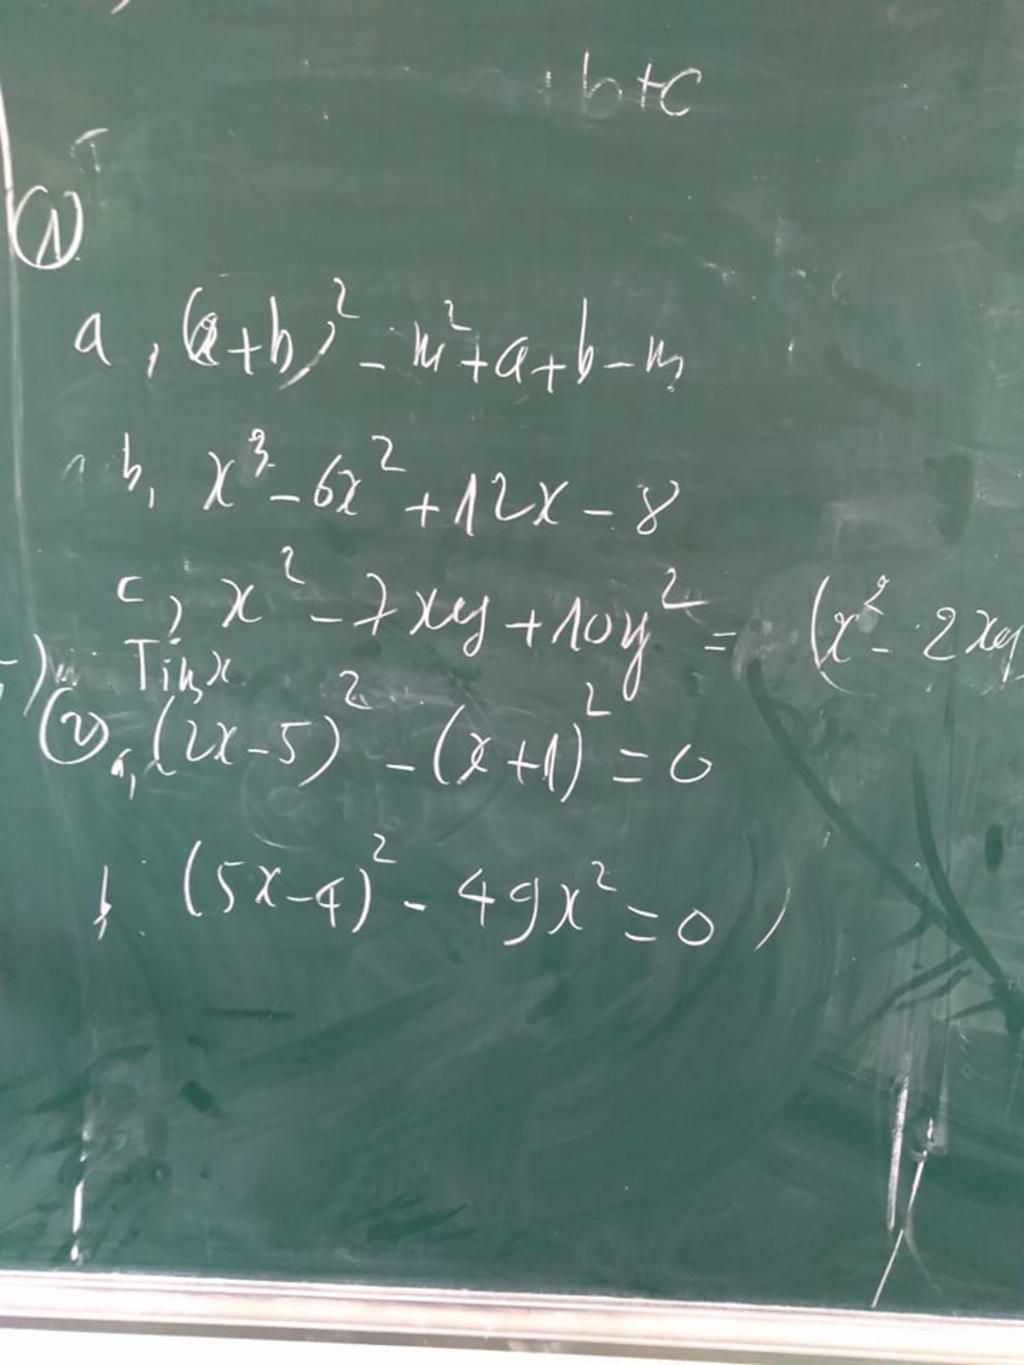 b+c
①
a, (a+b)² - m² + a + b - m
b, x³ - 6x² + 12x - 8
c, x² - 7xy + 10y² = (x² - 2xy
Tìm x
② a, (2x-5)² - (x+1)² = 0
b. (5x-4)² - 49x² = 0